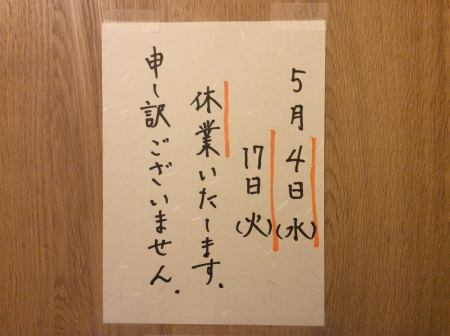 5月4日(水)
17日(火)
休業いたします。
申し訳ございません。